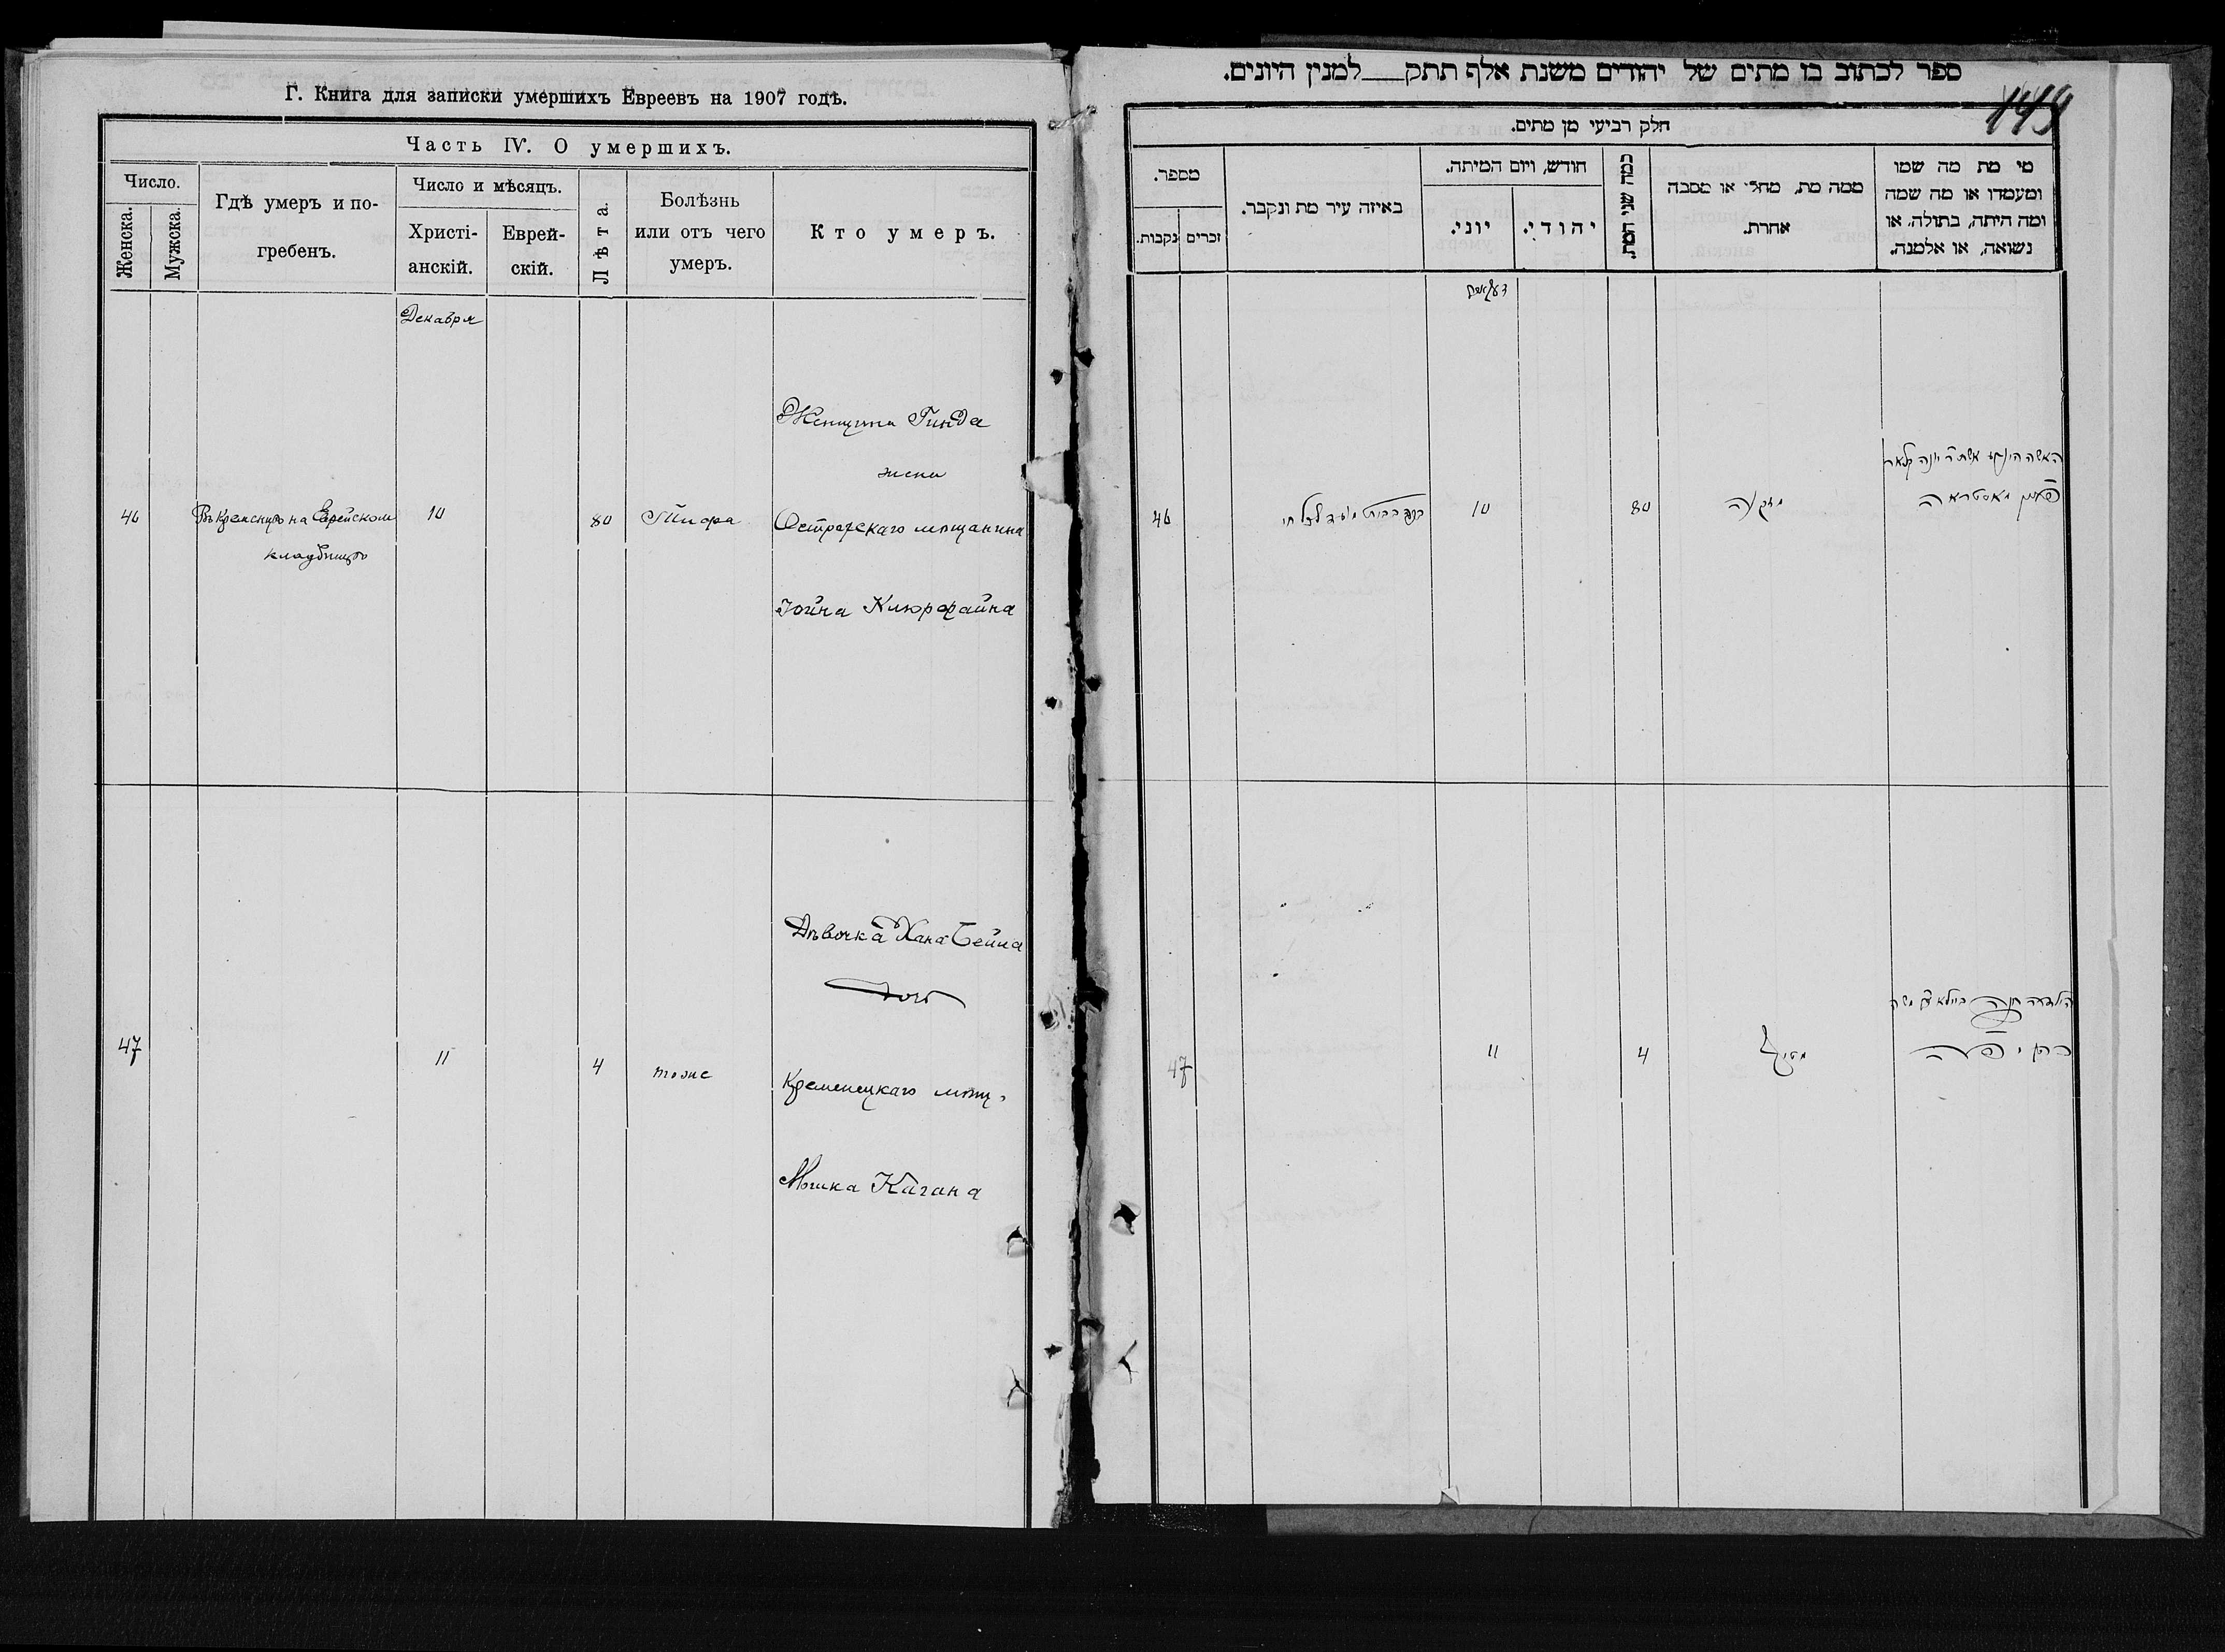 Г. Книга для записки умершихъ Евреевъ на 1907 годъ.
Часть IV. О умершихъ.
Число.
Женска.
Мужска.
Гдѣ умеръ и по-
гребенъ.
Число и мѣсяцъ.
Христі-
анскій.
Еврей-
скій.
Лѣта.
Болѣзнь
или отъ чего
умеръ.
Кто умеръ.
Декабря
46
Въ Кременцѣ на Еврейском
кладбищѣ
10
80
Тифа
Женщина Гинда
жена
Острогскаго мѣщанина
Іойна
47
11
4
тоже
Дѣвочка Хана Бейла
дочь
Кременецкаго мѣщ.
Мошка Кагана
ספר לכתוב בו מתים של יהודים משנת אלף תתק למנין היונים.
חלק רביעי מן מתים.
מספר.
נקבות.
זכרים
באיזה עיר מת ונקבר.
חודש, ויום המיתה.
יוני.
יהודי.
כמה שני המת.
ממה מת, מחלי או מסבה
אחרת.
מי מת מה שמו
ומעמדו או מה שמה
ומה היתה, בתולה, או
נשואה, או אלמנה.
46
10
80
מזקנה
האשה הינדא אשת ר' יונה
47
11
4
הילדה חנה ביילא בת משה